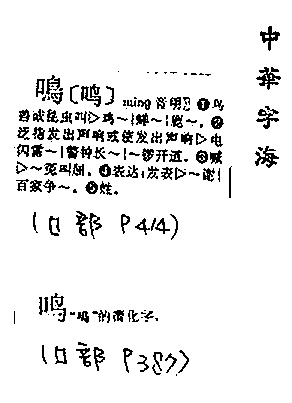 中華字海
鳴〔鸣〕 míng 音明 ❶鸟
兽或昆虫叫▷鸡～|蝉～|鹿～。❷
泛指发出声响或使发出声响▷电
闪雷～|警钟长～|～锣开道。❸喊
▷～冤叫屈。❹表达;发表▷～谢|
百家争～。❺姓。
(口部 P414)
鸣 "鳴"的简化字。
(口部 P387)